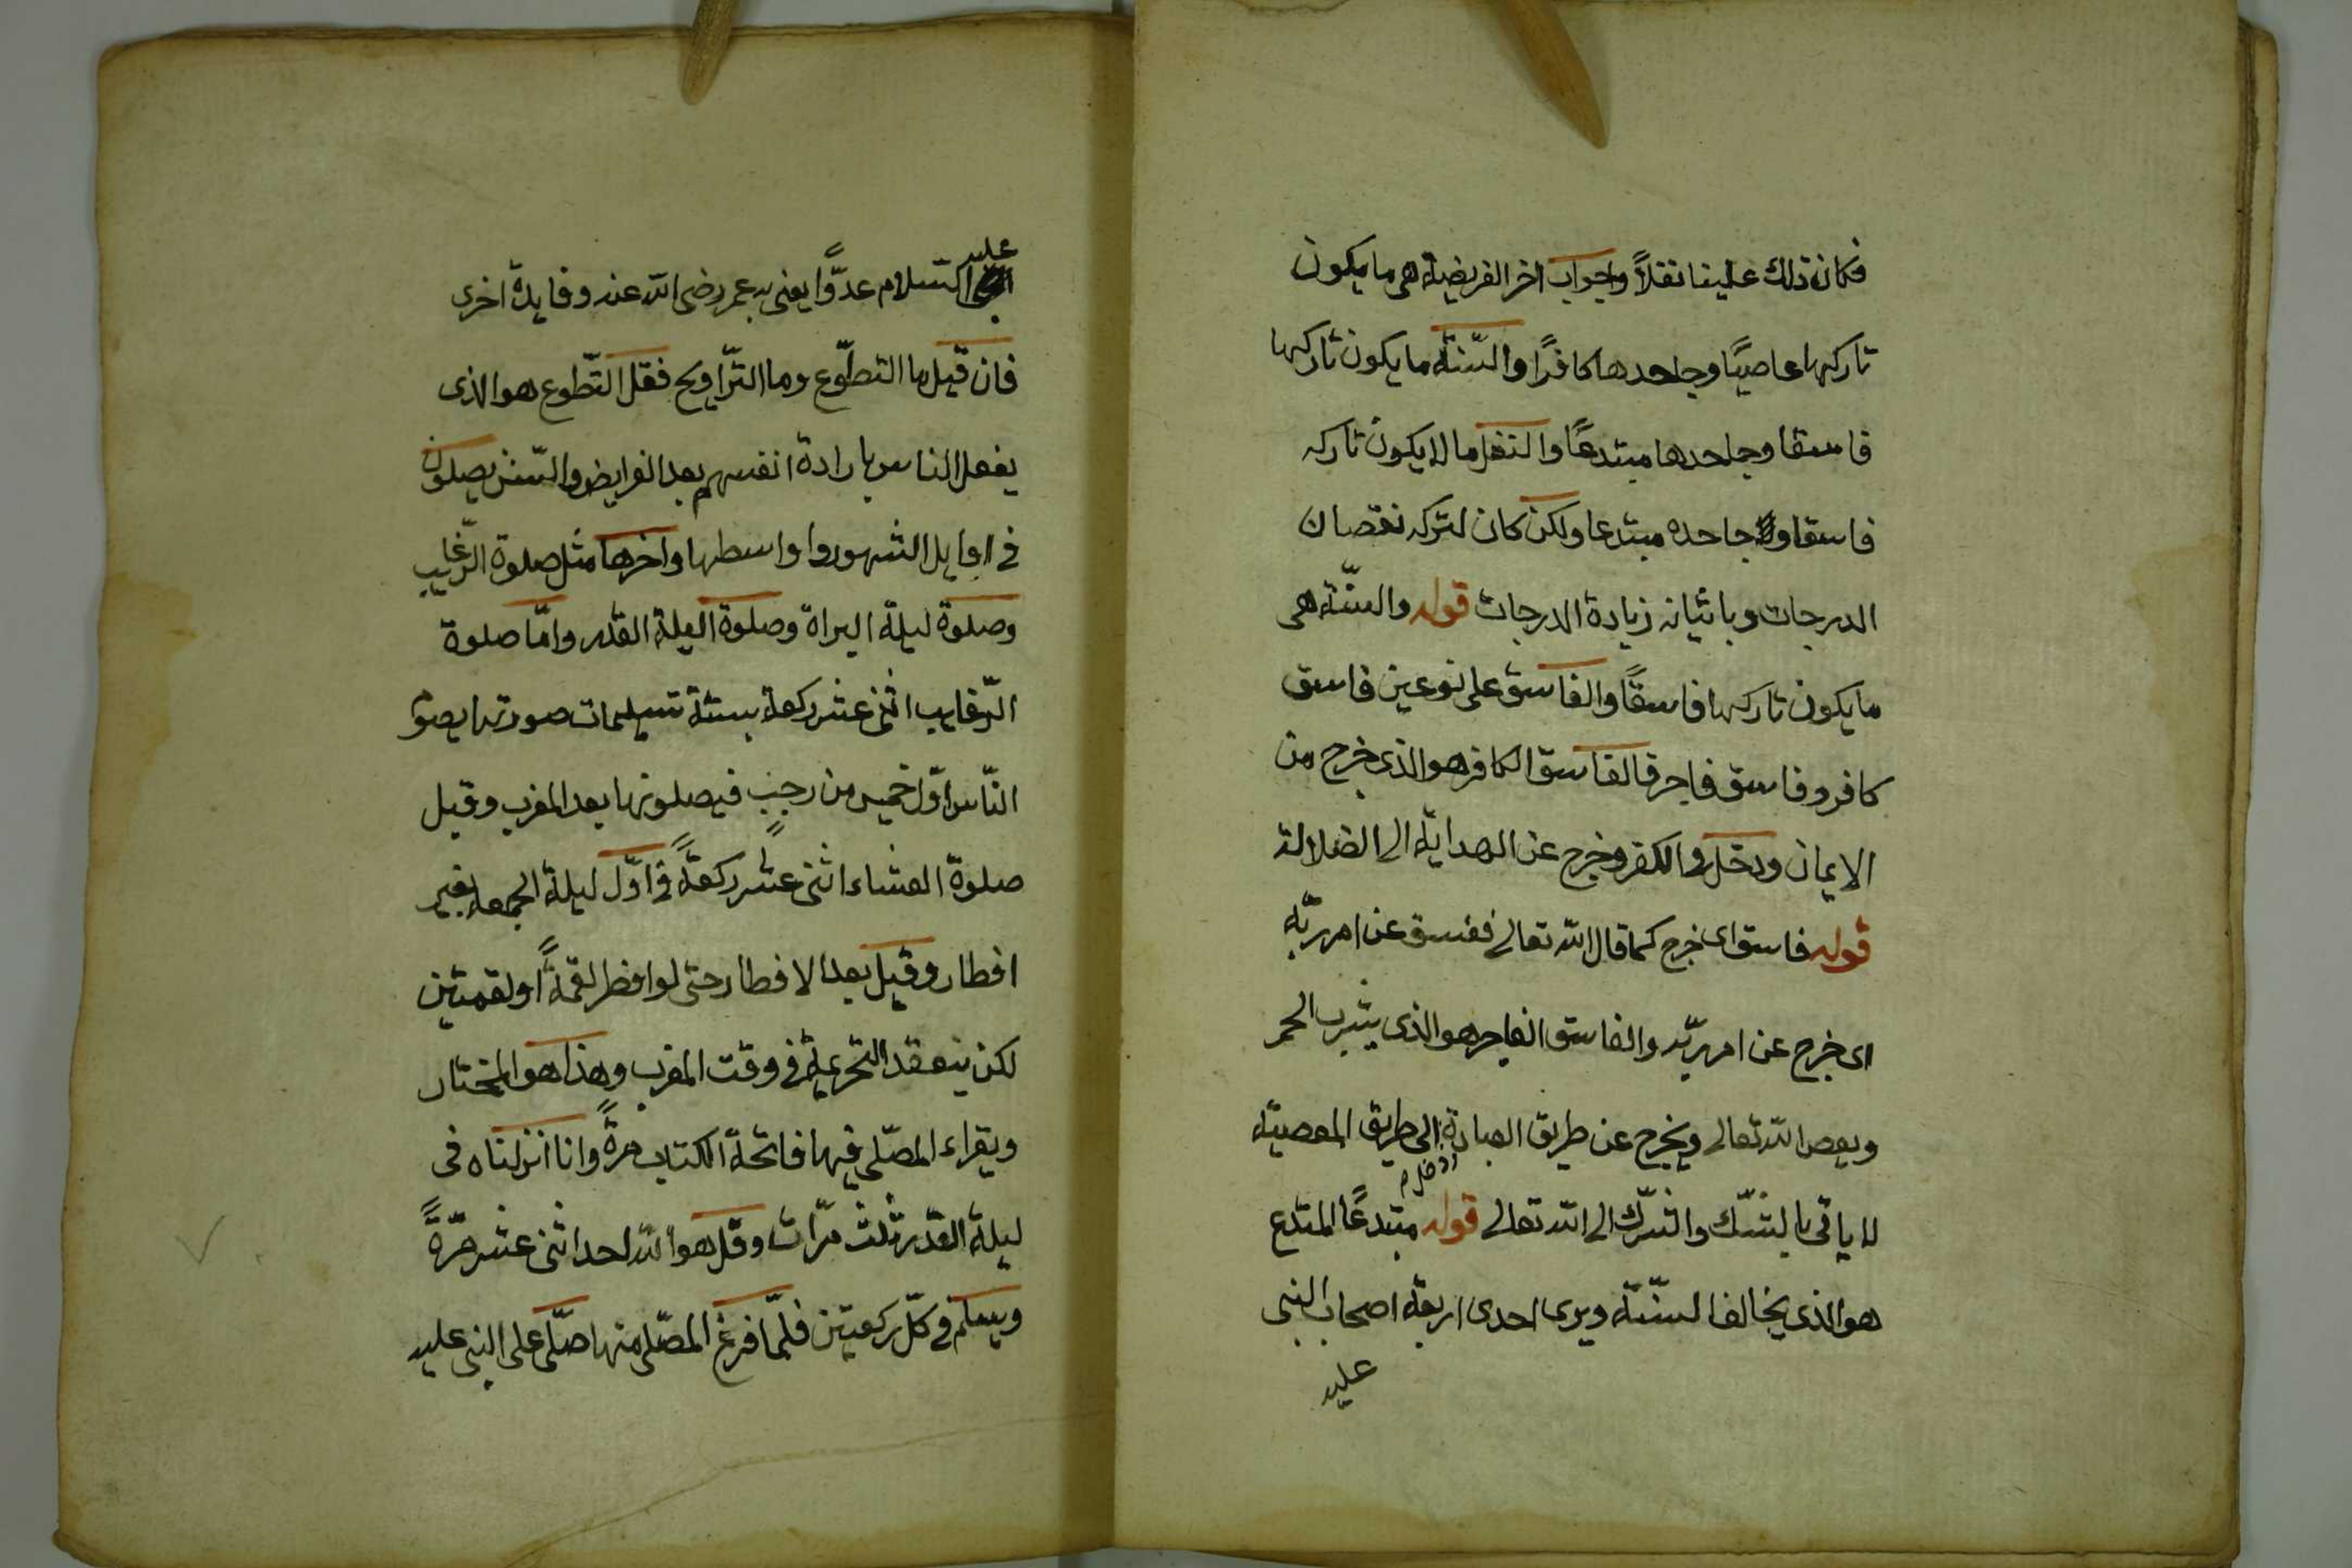 فكان ذلك علينا نفلاً وجواب اخر الفريضة هى ما يكون
تاركها عاصيًا وجاحدها كافرًا والسّنة ما يكون تاركها
فاسقا وجاحدها مبتدعًا والنفل ما لا يكون تاركه
فاسقا ولا جاحده مبتدعا ولكن كان لتركه نقصان
الدرجات وباتيانه زيادة الدرجات قوله والسنّة هى
ما يكون تاركها فاسقًا والفاسق على نوعين فاسق
كافر وفاسق فاجر فالفاسق الكافر هو الذى خرج من
الايمان ودخل فى الكفر وخرج عن الهداية الى الضلالة
قوله فاسق اى خرج كما قال الله تعالى ففسق عن امر ربّه
اى خرج عن امر ربّه والفاسق الفاجر هو الذى يشرب الخمر
ويعص الله تعالى ويخرج عن طريق العبادة الى طريق المعصية
لا ياتى بالشّك والشّرك الى الله تعالى قوله مبتدعًا المبتدع
هو الذى يخالف السنّة ويرى احدى اربعة اصحاب النبى
عليه
عليه
السلام عدوًّا يعنى به عمر رضى الله عنه وفايدة اخرى
فان قيل ما التطوّع وما التّراويح فقل التّطوع هو الذى
يفعل الناس بارادة انفسهم بعد الفرايض والسّنن يصلون
فى اوايل الشهور واواسطها واخرها مثل صلوة الرّغايب
وصلوة ليلة البراة وصلوة اليلة القدر وامّا صلوة
الرّغايب اثنى عشر ركعة بستة تسليمات صورتها يصو
النّاس اوّل خميس من رجب فيصلونها بعد المغرب وقبل
صلوة العشاء اثنى عشر ركعةً فى اوّل ليلة الجمعه بغير
افطار وقيل بعد الافطار حتى لو افطر لقمةً او لقمتين
لكن ينعقد التحريمة فى وقت المغرب وهذا هو المختار
ويقراء المصّلى فيها فاتحة الكتاب مرةً وانا انزلناه فى
ليلة القدر ثلث مرّات وقل هو الله احد اثنى عشر مرّةً
ويسلم فى كلّ ركعتين فلمّا فرغ المصّلى منها صلّى على النبى عليه